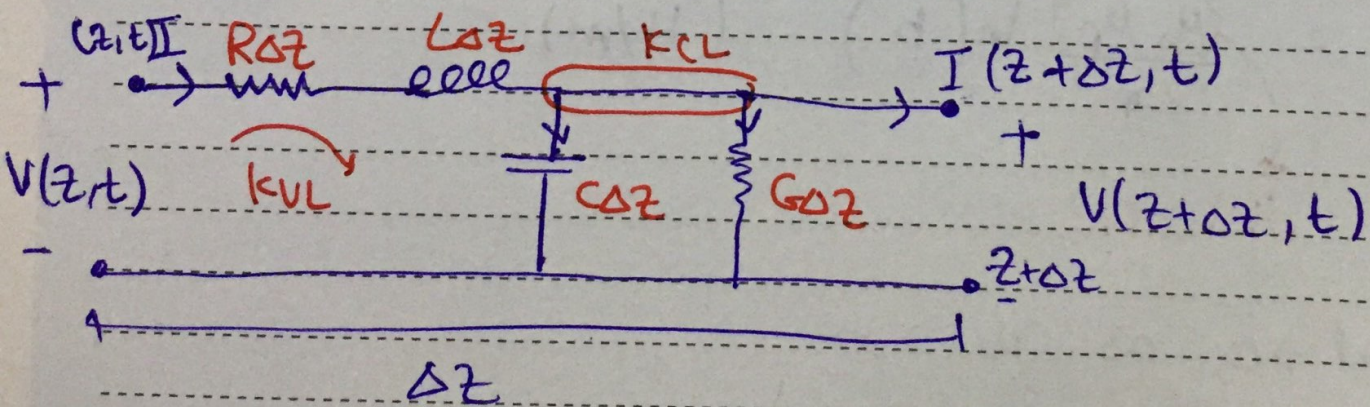 (z,t)I RΔZ LΔZ KCL I(Z+ΔZ,t)
+
+
V(z,t) KVL CΔZ GΔZ V(Z+ΔZ,t)
-
Z+ΔZ
-
ΔZ